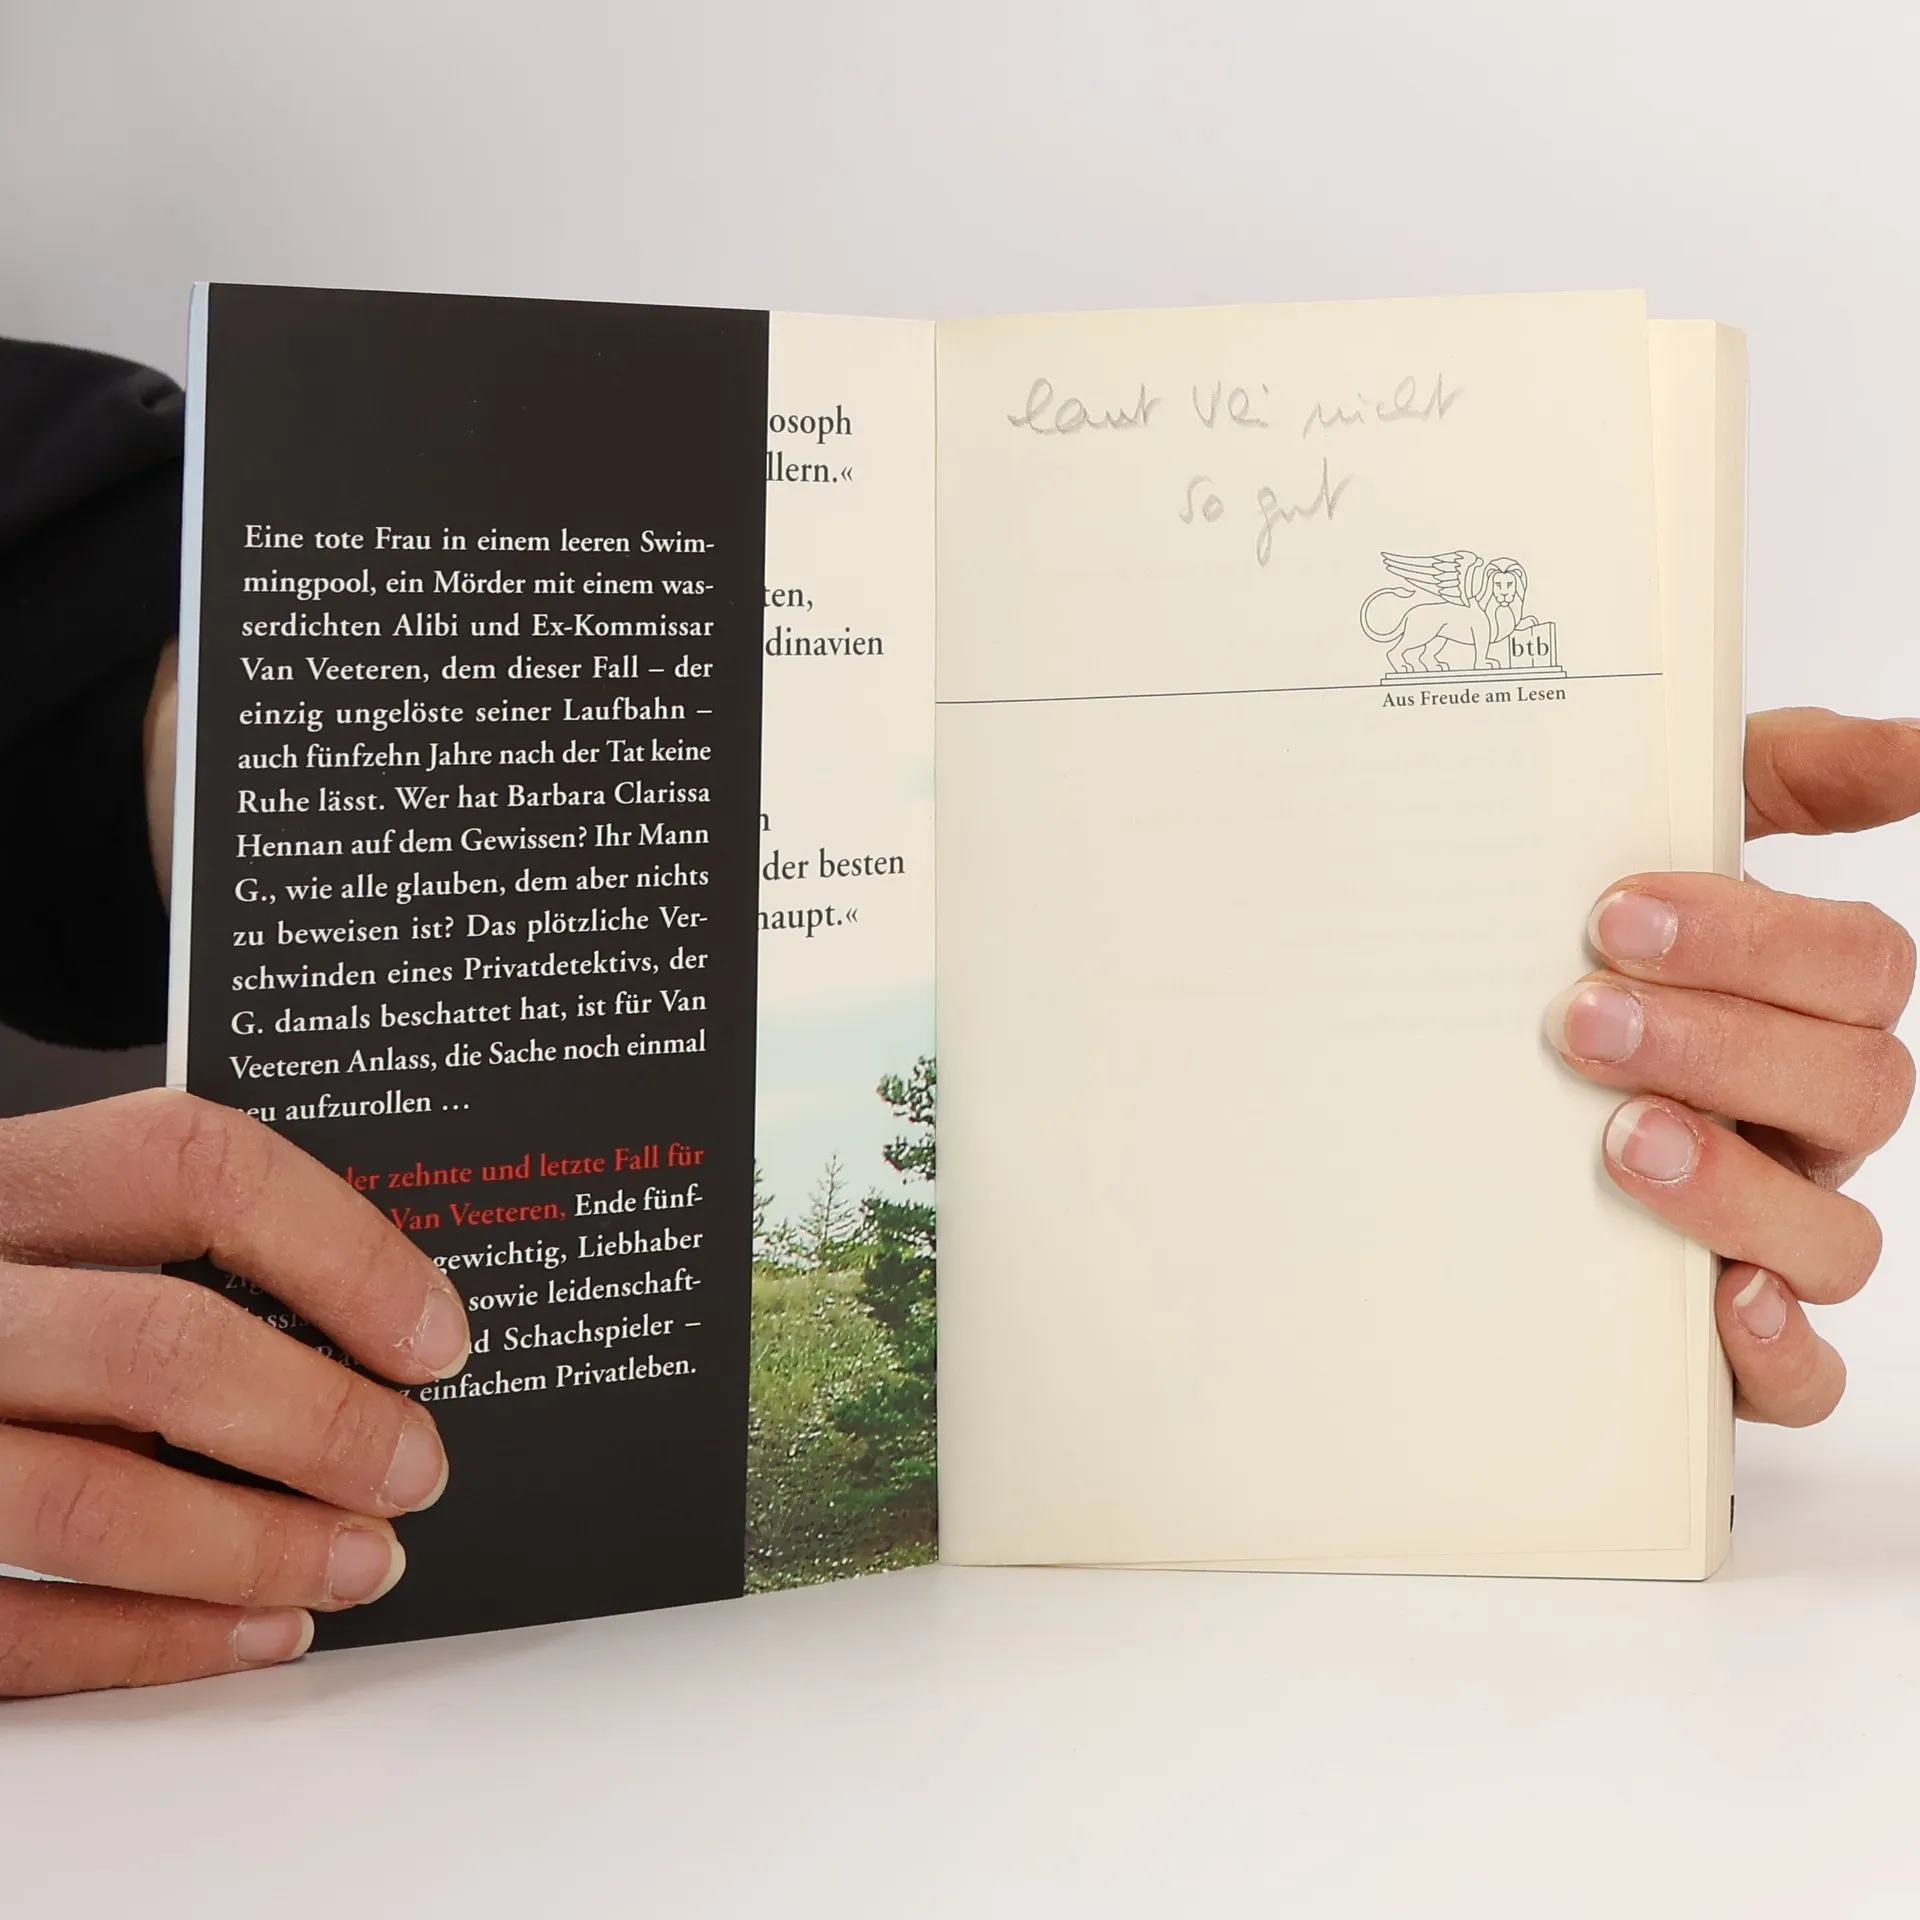 Eine tote Frau in einem leeren Swim-
mingpool, ein Mörder mit einem was-
serdichten Alibi und Ex-Kommissar
Van Veeteren, dem dieser Fall – der
einzig ungelöste seiner Laufbahn –
auch fünfzehn Jahre nach der Tat keine
Ruhe lässt. Wer hat Barbara Clarissa
Hennan auf dem Gewissen? Ihr Mann
G., wie alle glauben, dem aber nichts
zu beweisen ist? Das plötzliche Ver-
schwinden eines Privatdetektivs, der
G. damals beschattet hat, ist für Van
Veeteren Anlass, die Sache noch einmal
eu aufzurollen ...
der zehnte und letzte Fall für
Van Veeteren, Ende fünf-
gewichtig, Liebhaber
sowie leidenschaft-
nd Schachspieler –
einfachem Privatleben.
osoph
llern.«
ten,
dinavien
der besten
haupt.«
laut nicht
so gut
btb
Aus Freude am Lesen